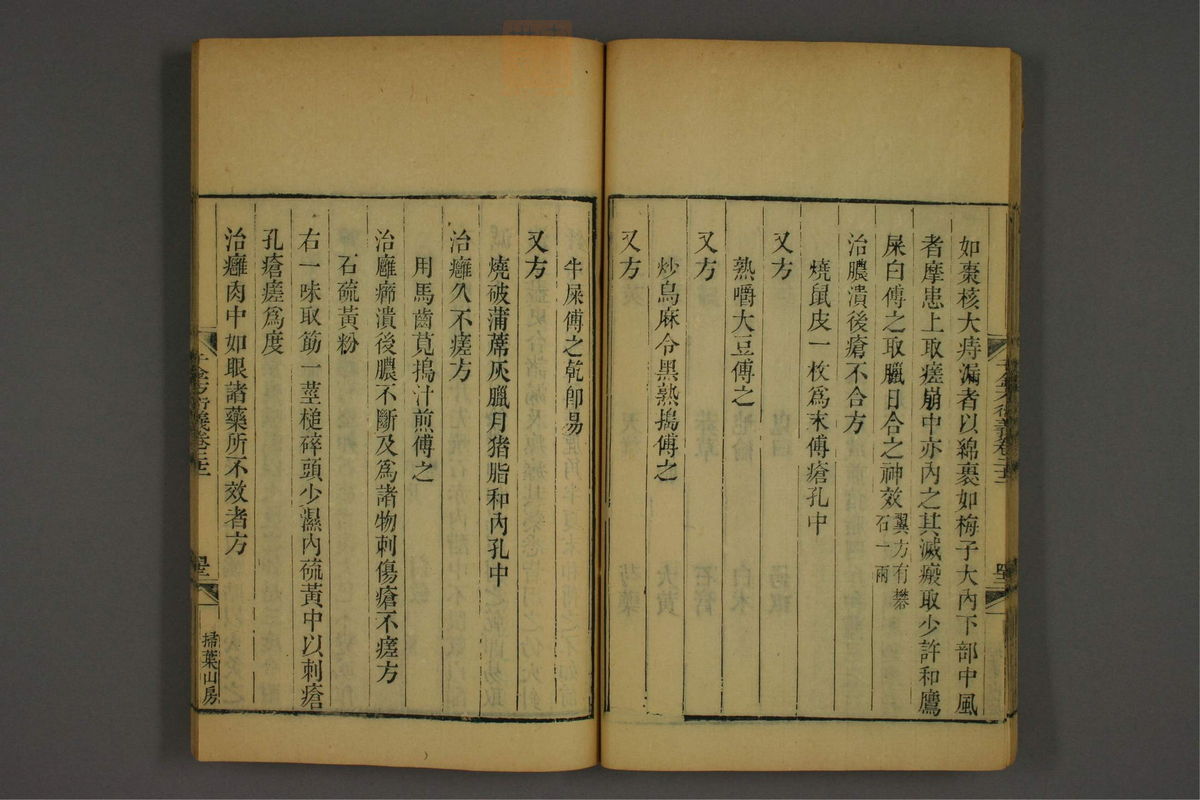 如棗核大痔漏者以綿裹如梅子大內下部中風
者摩患上取瘥崩中亦內之其滅瘢取少許和鷹
屎白傅之取臘日合之神效翼方有礬
石一兩
治膿潰後瘡不合方
燒鼠皮一枚爲末傅瘡孔中
又方
熟嚼大豆傅之
又方
炒烏麻令黑熟搗傅之
又方
牛屎傅之乾即易
又方
燒破蒲蓆灰臘月猪脂和內孔中
治癰久不瘥方
用馬齒莧搗汁煎傅之
治癰癤潰後膿不斷及爲諸物刺傷瘡不瘥方
石硫黃粉
右一味取筯一莖槌碎頭少濕內硫黃中以刺瘡
孔瘡瘥爲度
治癰肉中如眼諸藥所不效者方
掃葉山房